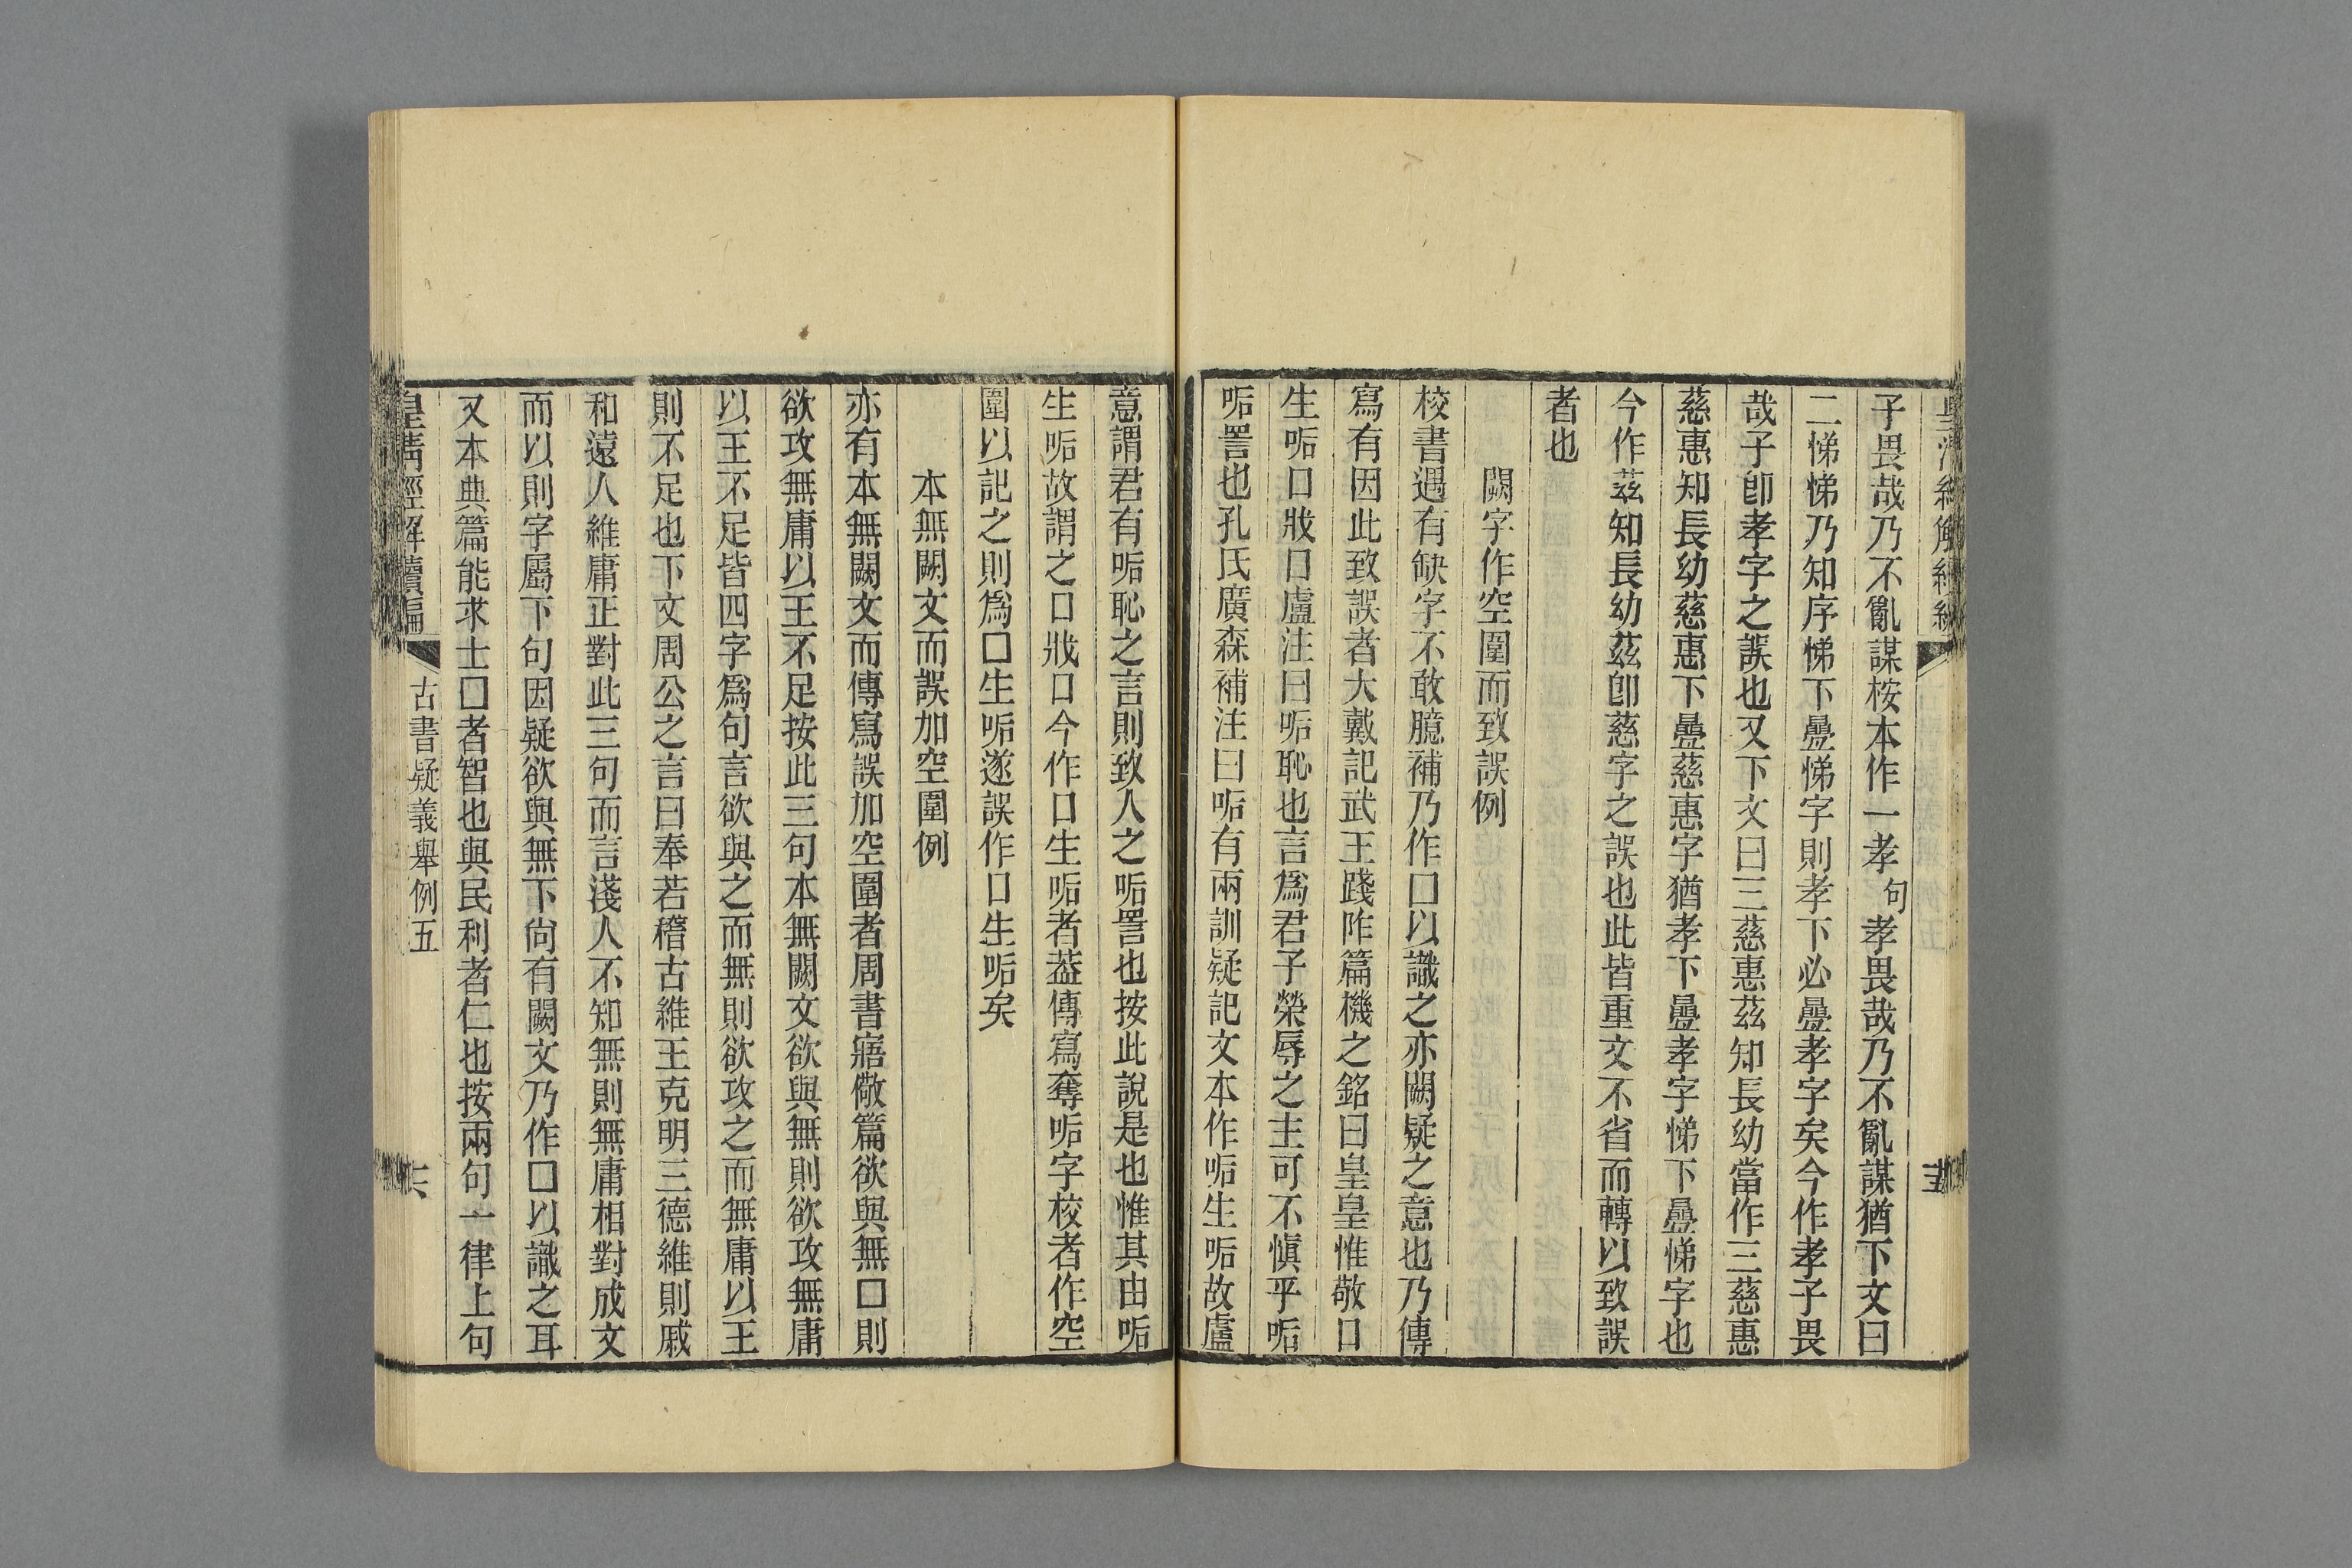 子畏哉乃不亂謀桉本作一孝句孝畏哉乃不亂謀猶下文曰
二悌悌乃知序悌下疊悌字則孝下必疊孝字矣今作孝子畏
哉子卽孝字之誤也又下文曰三慈惠茲知長幼當作三慈惠
慈惠知長幼慈惠下疊慈惠字猶孝下疊孝字悌下疊悌字也
今作茲知長幼茲卽慈字之誤也此皆重文不省而轉以致誤
者也
闕字作空圍而致誤例
校書遇有缺字不敢臆補乃作囗以識之亦闕疑之意也乃傳
寫有因此致誤者大戴記武王踐阼篇機之銘曰皇皇惟敬口
生㖃口戕口盧注曰㖃恥也言爲君子榮辱之主可不愼乎㖃
㖃詈也孔氏廣森補注曰㖃有兩訓疑記文本作㖃生㖃故盧
意謂君有㖃恥之言則致人之㖃詈也按此說是也惟其由㖃
生㖃故謂之口戕口今作口生㖃者葢傳寫奪㖃字校者作空
圍以記之則爲囗生㖃遂誤作口生㖃矣
本無闕文而誤加空圍例
亦有本無闕文而傳寫誤加空圍者周書寤儆篇欲與無囗則
欲攻無庸以王不足按此三句本無闕文欲與無則欲攻無庸
以王不足皆四字爲句言欲與之而無則欲攻之而無庸以王
則不足也下文周公之言曰奉若稽古維王克明三德維則戚
和遠人維庸正對此三句而言淺人不知無則無庸相對成文
而以則字屬下句因疑欲與無下尙有闕文乃作囗以識之耳
又本典篇能求士囗者智也與民利者仁也按兩句一律上句
皇淸經解續編
古書疑義舉例五